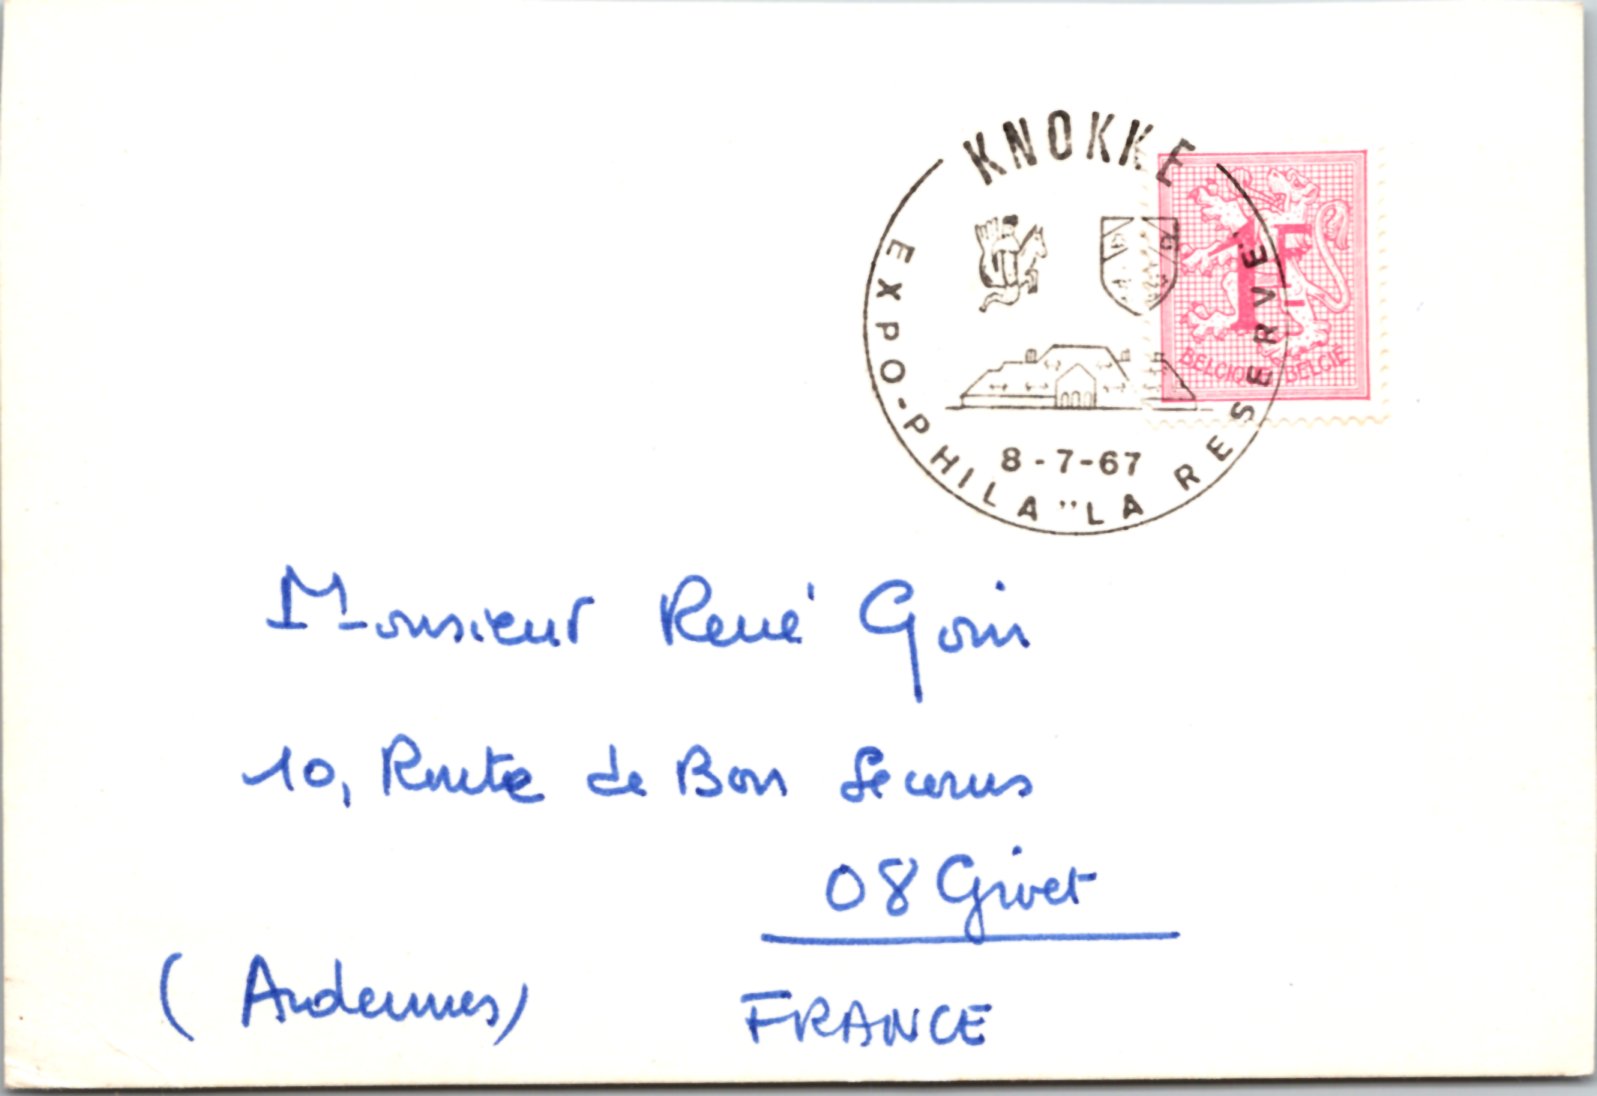 KNOKKE
EXPO-PHILA "LA RESERVE"
8-7-67
1F
BELGIQUE BELGIË
Monsieur René Goin
10, Route de Bon Secours
08 Givet
(Ardennes)
FRANCE